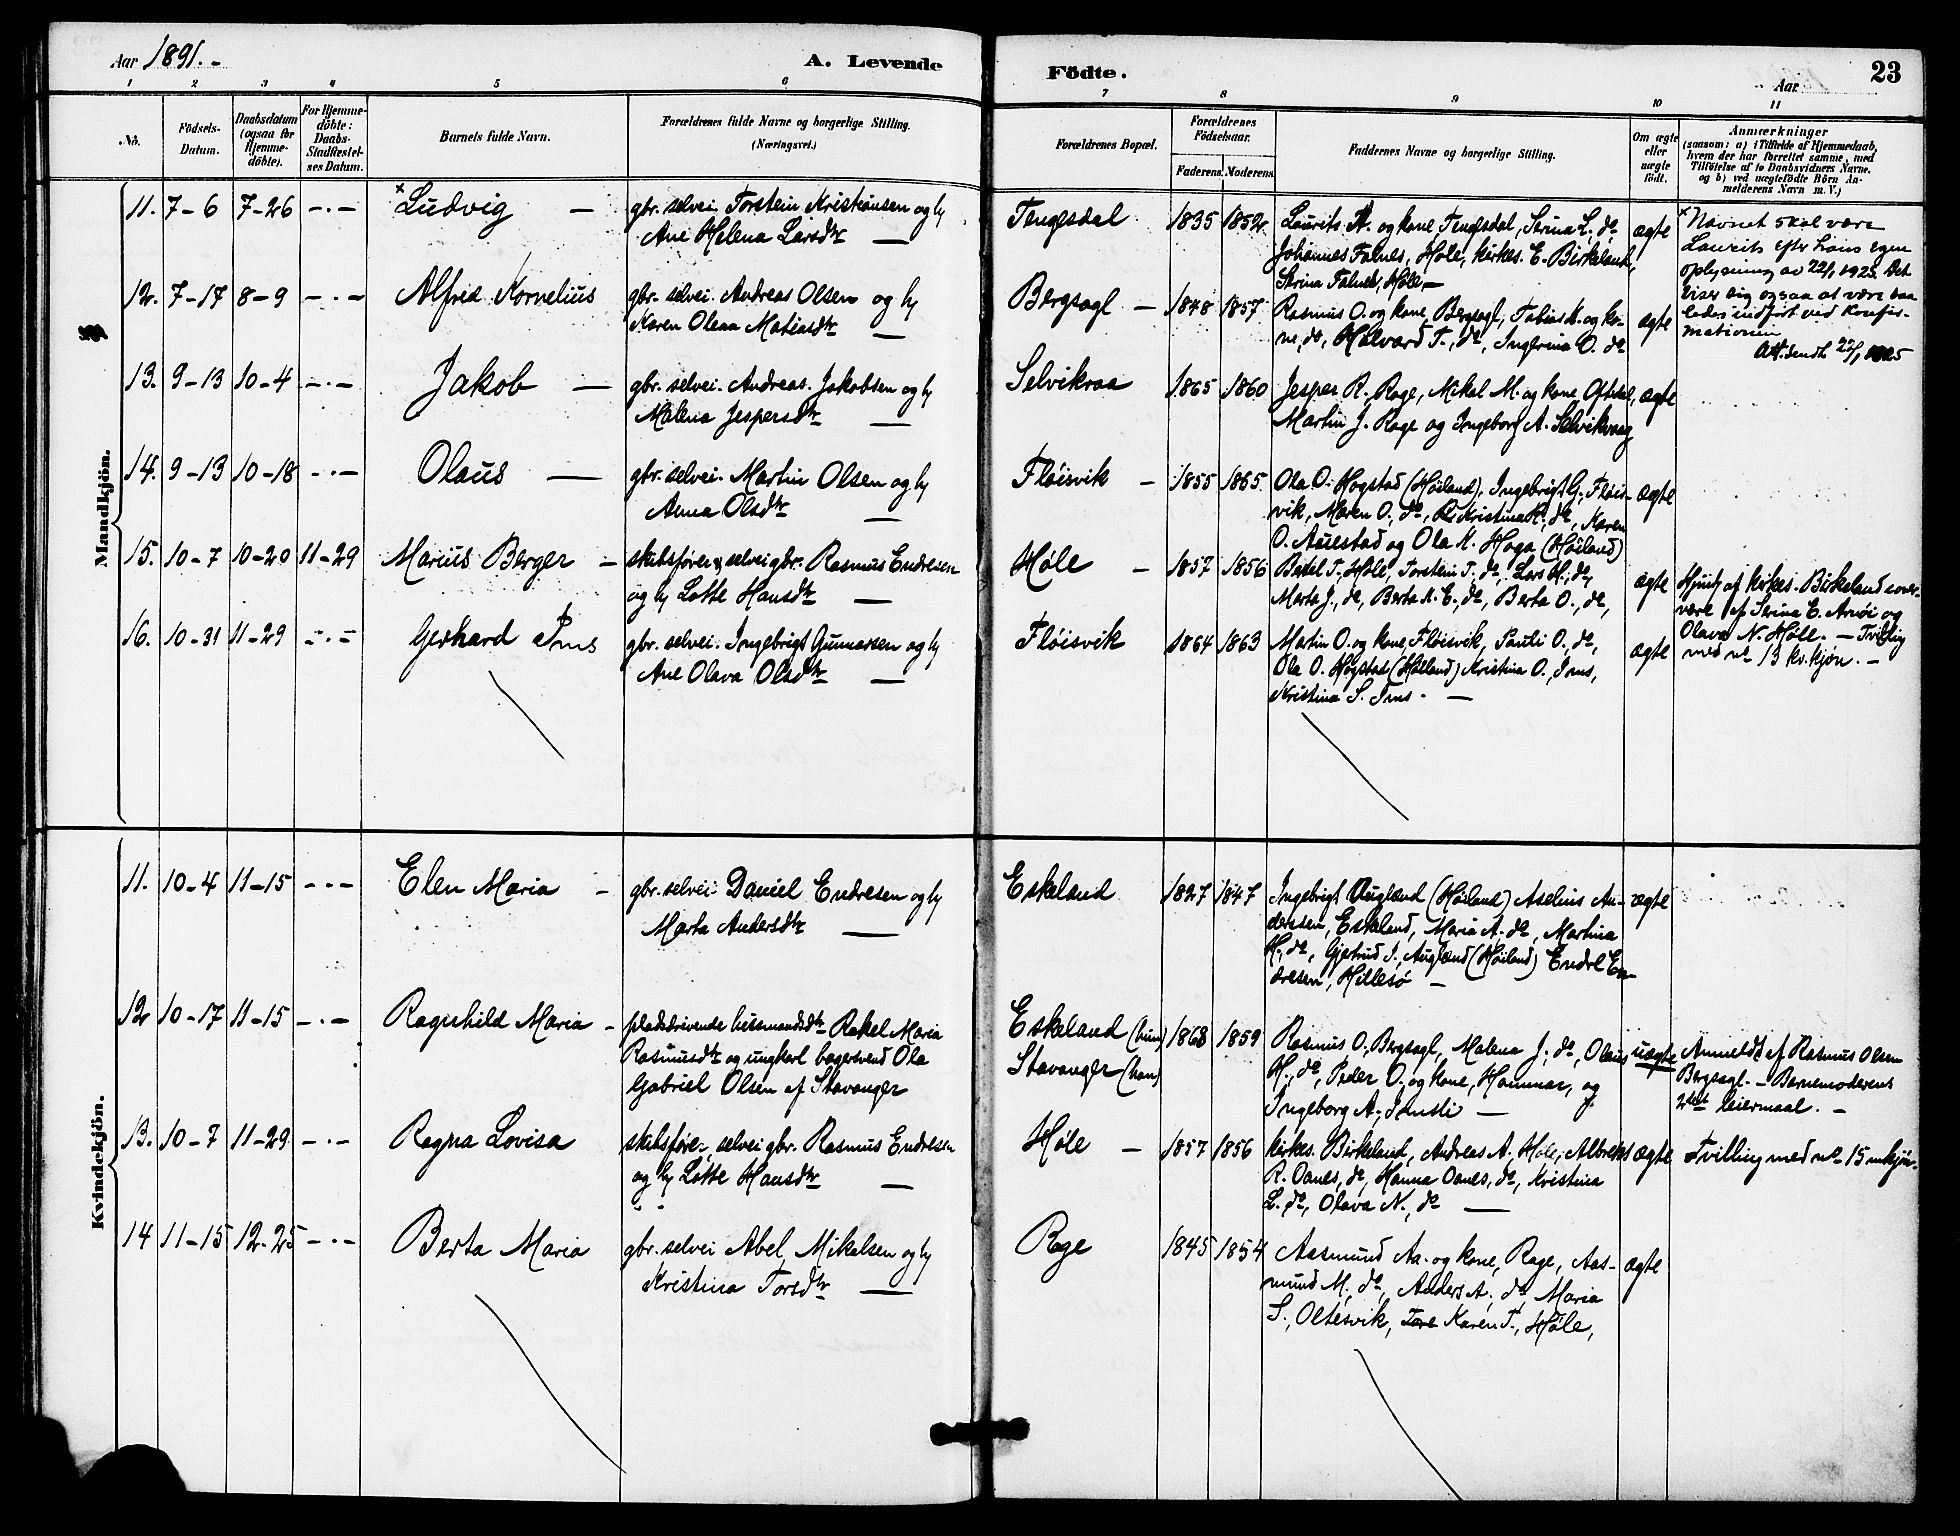 Aar 1891.-
A. Levende
Födte.
Aar
23
1 2 3 4 5 6 7 8 9 10 11
No.
Födsels-
Datum.
Daabsdatum
(ogsaa for
Hjemme-
döbte).
For Hjemme-
döbte:
Daabs-
Stadfæstel-
ses Datum.
Barnets fulde Navn.
Forældrenes fulde Navne og borgerlige Stilling.
(Næringsvei.)
Forældrenes Bopæl.
Forældrenes
Födselsaar.
Faderens. Moderens.
Faddernes Navne og borgerlige Stilling.
Om ægte
eller
uægte
födt.
Anmærkninger
(saasom: a) i Tilfælde af Hjemmedaab,
hvem der har forrettet samme, med
Tilföielse af to Daabsvidners Navne.
og b) ved uægtefödte Börn An-
melderens Navn m. V.)
Mandkjön.
11. 7-6 7-26 -.- × Ludvig —
gbr. selvei. Torstein Kristiansen og hu
Ane Helena Larsdtr —
Tengesdal 1835 1852
Laurits A. og kone Tengesdal, Serina L. do
Johannes Falnes, Høle, kirkes. E. Birkeland,
Serina Falnes, Høle. —
ægte
× Navnet skal være
Laurits efter hans egen
oplysning av 22/1 1925. Det
viser sig ogsaa at være saa
ledes indført ved konfir-
mationen
22/1 1925
12. 7-17 8-9 -.- Alfred Kornelius
gbr. selvei. Andreas Olsen og hu
Karen Olena Matiasdtr —
Bergsagl — 1848 1857
Rasmus O. og kone, Bergsagl, Tobias K. og ko-
ne, do, Halvard T., do, Ingerina O. do
ægte
13. 9-13 10-4 -.- Jakob —
gbr. selvei. Andreas Jakobsen og hu
Malena Jespersdtr —
Selvikvaa 1865 1860
Jesper R. Rage, Mikal M. og kone Oftedal,
Martin J. Rage og Ingeborg A. Selvikvaag
ægte
14. 9-13 10-18 -.- Olaus —
gbr. selvei. Martin Olsen og hu
Anna Olsdtr —
Fløisvik — 1855 1865
Ola O. Hogstad (Høiland), Ingebrigt G. Fløis-
vik, Maren O., do, Kristina K. do, Karen
O. Auestad og Ola K. Haga (Høiland)
ægte
15. 10-7 10-20 11-29 Marius Berger —
skibsfører & selvei gbr. Rasmus Endresen
og hu Lotte Hansdtr —
Høle — 1857 1856
Bertel T. Høle, Torstein T. do, Lars H., do,
Marta J., do, Berta K. E., do, Berta O., do,
ægte
Hjmdt af kirkes. Birkeland over-
være af Serina E. og
Olava N. Høle. — Tvilling
med no 13 kv.kjøn. —
16. 10-31 11-29 -.- Gerhard Ims
gbr. selvei. Ingebrigt Gunnarsen og hu
Ane Olava Olsdtr —
Fløisvik 1864 1863
Martin O. og kone Fløisvik, Pauli O., do,
Ola O. Hogstad (Høiland) Kristina O., Ims,
Kristina S. Ims. —
ægte
Kvindekjön.
11. 10-4 11-15 -.- Elen Maria —
gbr. selvei. Daniel Endresen og hu
Marta Andersdtr —
Eskeland 1827 1847
Ingebrigt Augland (Høiland) Aselius An-
derssen, Eskeland, Maria A. do, Martina
H., do, Gjertrud I., Augland (Høiland) Endre En-
dresen, Hillesø —
ægte
12 10-17 11-15 -.- Ragnhild Maria —
pladsdrivende husmandsdtr Rakel Maria
Rasmusdtr og ungkarl bagersvend Ola
Gabriel Olsen af Stavanger
Eskeland (hun)
Stavanger (han)
1868 1859
Rasmus O. Bergsagl, Malena J., do, Olaus
H., do, Peder O. og kone, Hammar, og
Ingeborg A., Imsli —
uægte
Anmeldt af Rasmus Olsen
Bergsagl. — Barnemoderens
2det leiermaal. —
13. 10-7 11-29 -.- Ragna Lovisa
skibsfører, selvei gbr. Rasmus Endresen
og hu Lotte Hansdtr —
Høle — 1857 1856
kirkes. Birkeland, Andreas A. Høle, Albrekt
R. Oanes, do, Hanna Oanes, do, Kristina
L. do, Olava N., do —
ægte
Tvilling med no 15 m.kjøn.
14 11-15 12-25 -.- Berta Maria
gbr. selvei Abel Mikalsen og hu
Kristina Torsdtr —
Rage 1845 1854
Aasmund Aa. og kone, Rage, Aas-
mund M., do, Anders A., do Maria
S., Oltesvik, Tore Karen T., Høle,
ægte